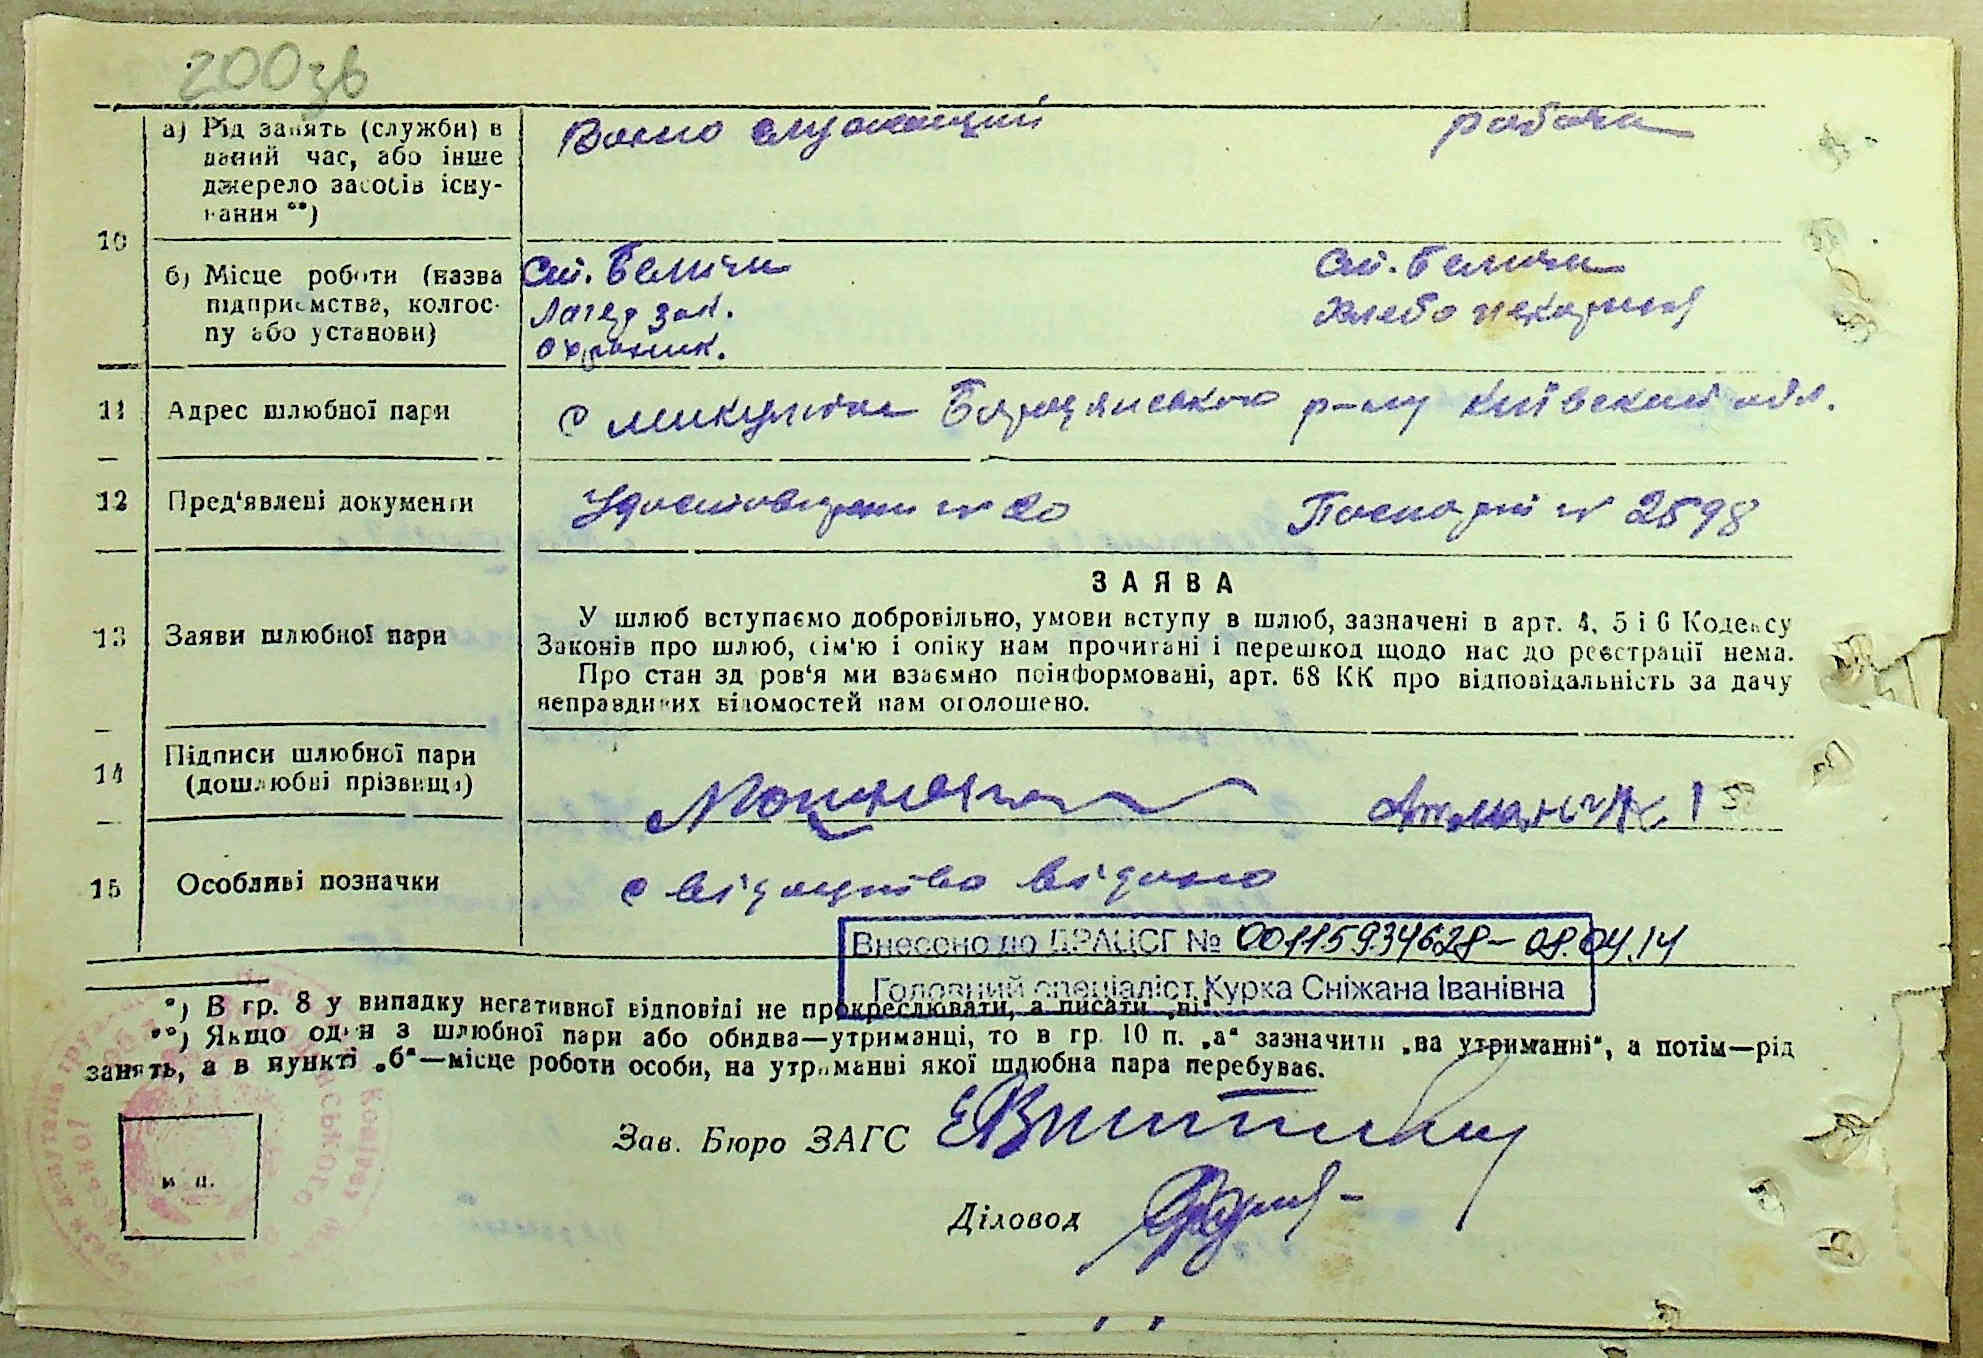 200зв
а) Рід занять (служби) в
даний час, або інше
джерело засобів існу-
вання **)
Воено служащий рабоча
10
б) Місце роботи (назва
підприємства, колгос-
пу або установи)
Ст. Беличи Ст. Беличи
Лагер зак. Хлебо пекарня
охраник.
11 Адрес шлюбної пари
с Микуличи Бородянського р-ну Київский обл.
12 Пред'явлені документи
N 20 Паспорт N 2598
13 Заяви шлюбної пари
ЗАЯВА
У шлюб вступаємо добровільно, умови вступу в шлюб, зазначені в арт. 4, 5 і 6 Кодексу
Законів про шлюб, сім'ю і опіку нам прочитані і перешкод щодо нас до реєстрації нема.
Про стан здоров'я ми взаємно поінформовані, арт. 68 КК про відповідальність за дачу
неправдивих відомостей нам оголошено.
14 Підписи шлюбної пари
(дошлюбні прізвища)
15 Особливі позначки
Внесено до ДРАЦСГ № 00115934628-08.04.14
Головний спеціаліст Курка Сніжана Іванівна
*) В гр. 8 у випадку негативної відповіді не прокреслювати, а писати „ні".
**) Якщо один з шлюбної пари або обидва—утриманці, то в гр. 10 п. „а" зазначити „на утриманні", а потім—рід
занять, а в пункті „б"—місце роботи особи, на утриманні якої шлюбна пара перебуває.
Зав. Бюро ЗАГС
м. п.
Діловод